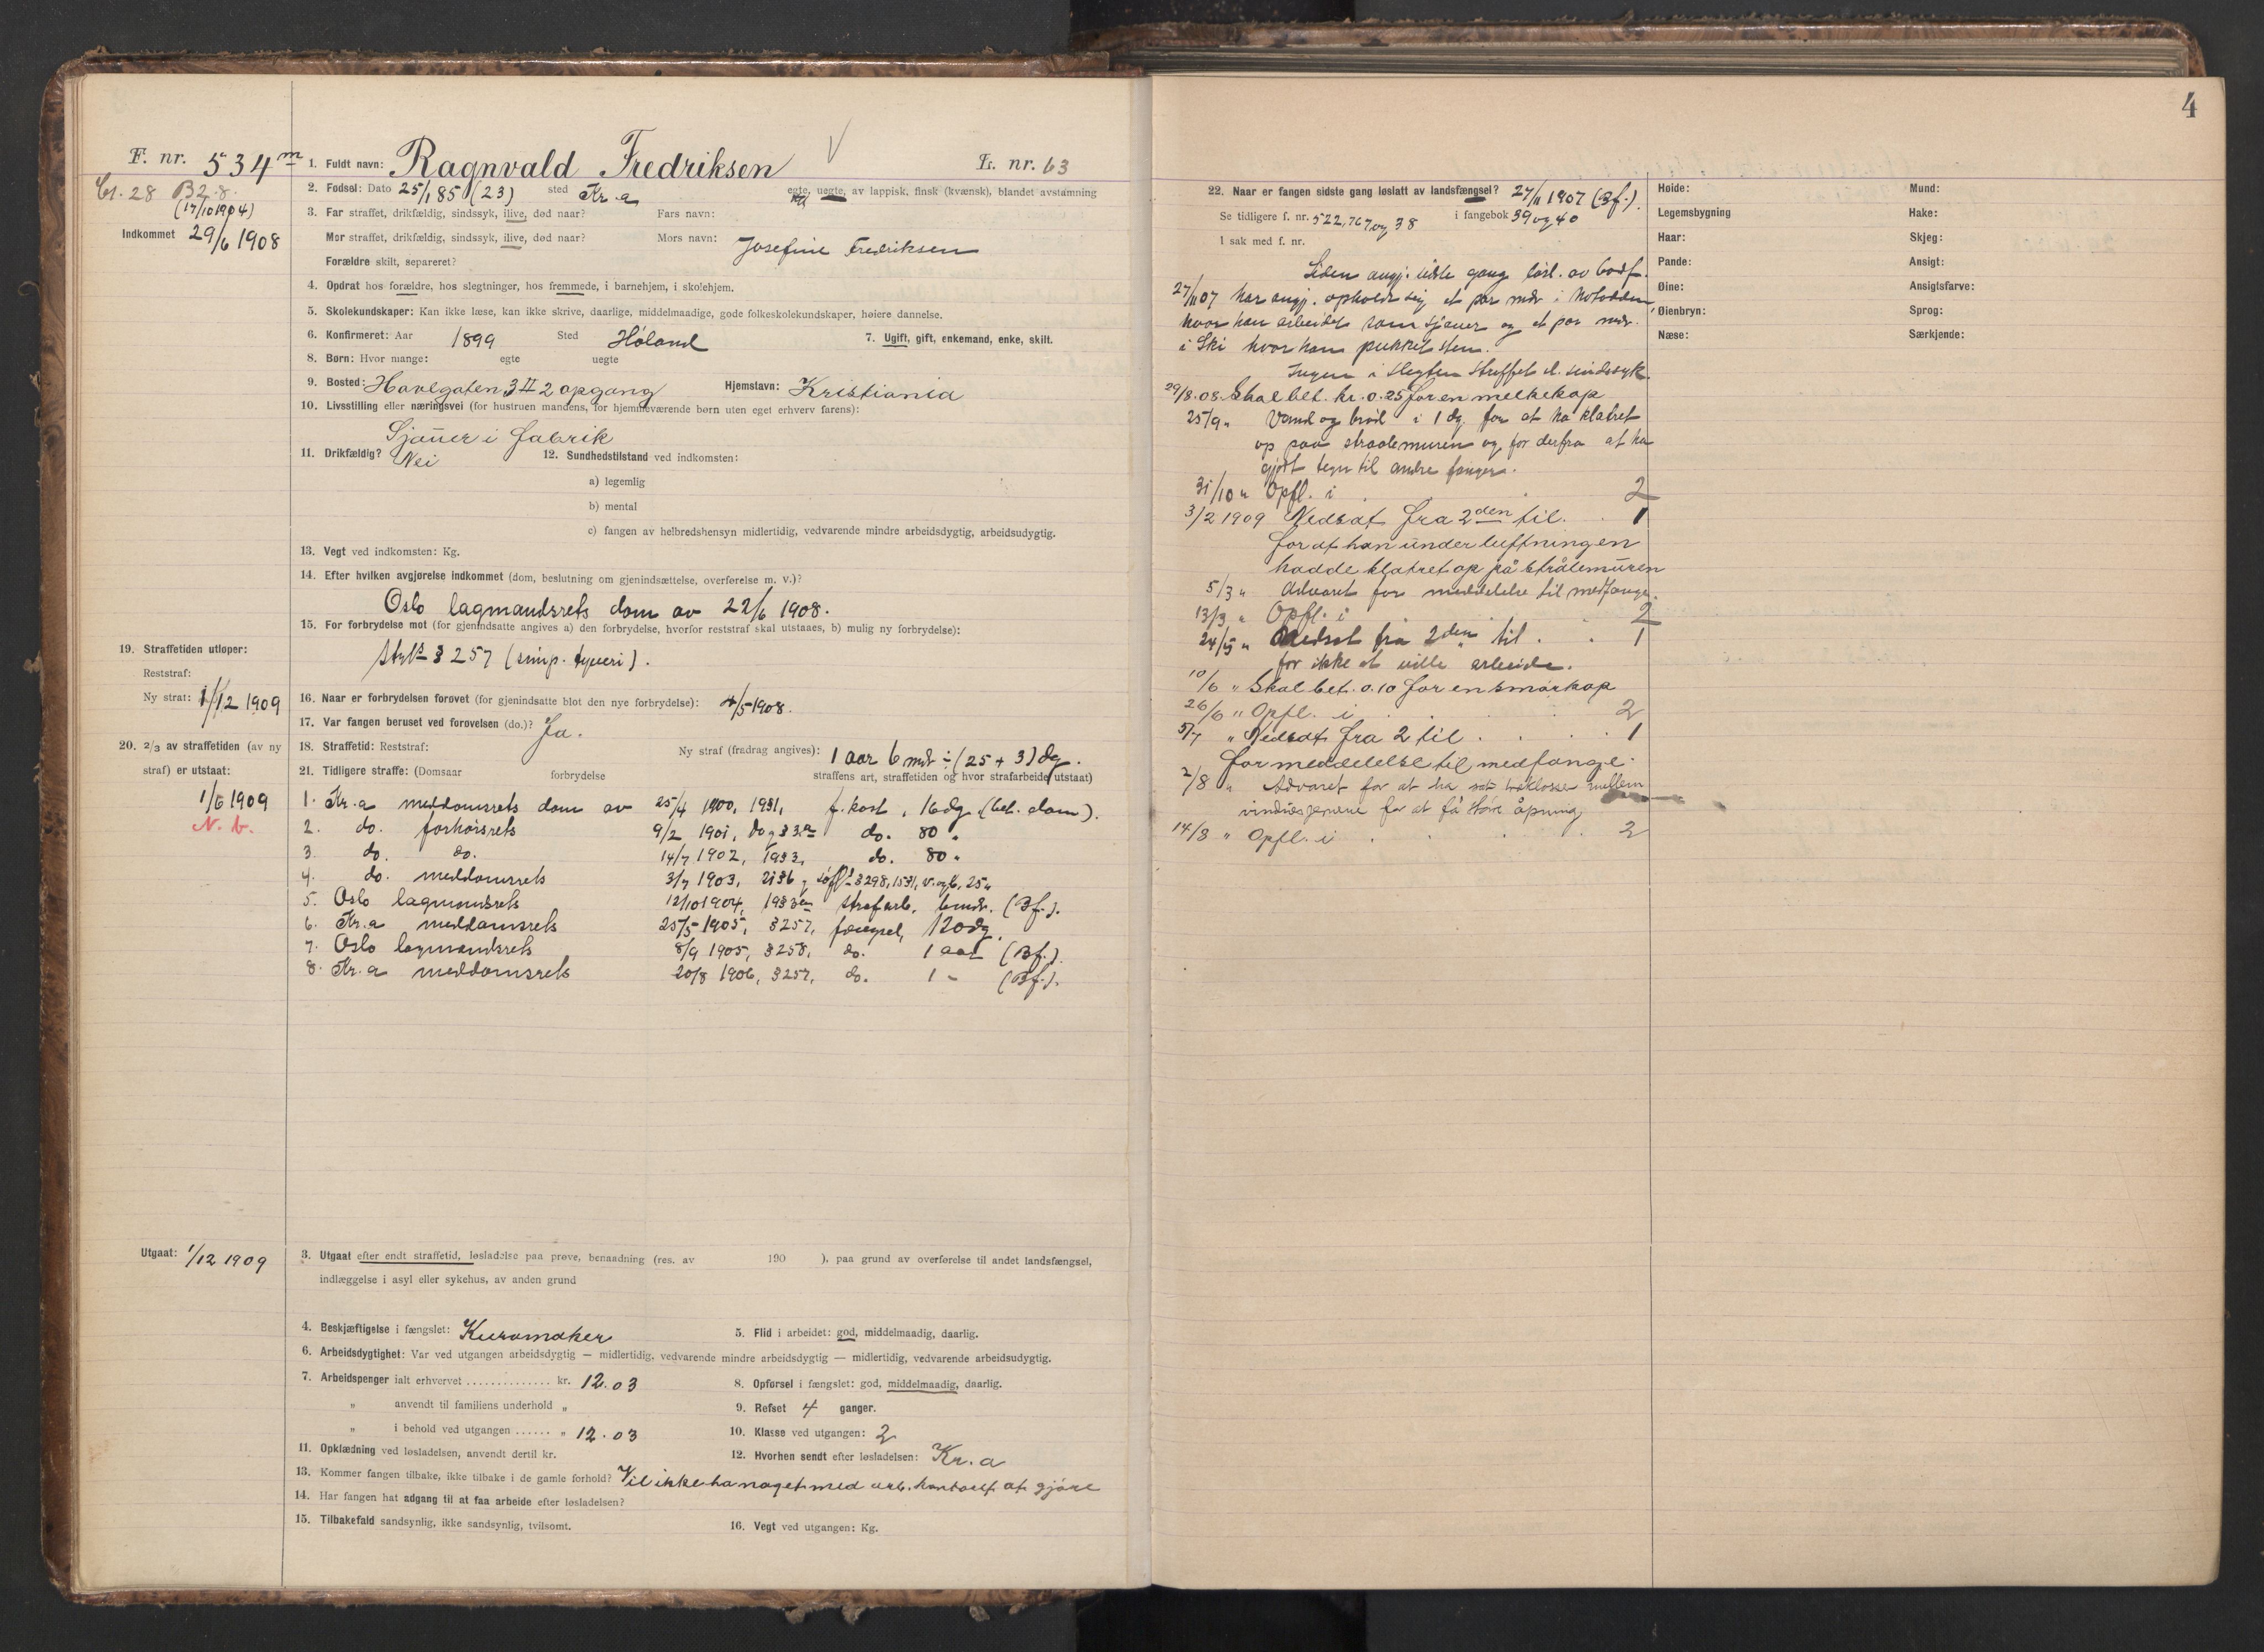 F. nr. 534 m
1. Fuldt navn: Ragnvald Fredriksen
L. nr. 63
Cl. 28 B2.8.
(17/10 1904)
Indkommet 29/6 1908
2. Fødsel: Dato 25/1 85 (23) sted Kr.a egte, uegte, av lappisk, finsk (kvænsk), blandet avstamning
3. Far straffet, drikfældig, sindssyk, ilive, død naar? Fars navn:
Mor straffet, drikfældig, sindssyk, ilive, død naar? Mors navn: Josefine Fredriksen
Forældre skilt, separeret?
4. Opdrat hos forældre, hos slegtninger, hos fremmede, i barnehjem, i skolehjem.
5. Skolekundskaper: Kan ikke læse, kan ikke skrive, daarlige, middelmaadige, gode folkeskolekundskaper, høiere dannelse.
6. Konfirmeret: Aar 1899 Sted Høland 7. Ugift, gift, enkemand, enke, skilt.
8. Børn: Hvor mange: egte uegte
9. Bosted: Havlgaten 3 II 2 opgang Hjemstavn: Kristiania
10. Livsstilling eller næringsvei (for hustruen mandens, for hjemmeværende børn uten eget erhverv farens):
Sjauer i fabrik
11. Drikfældig? Nei 12. Sundhedstilstand ved indkomsten:
a) legemlig
b) mental
c) fangen av helbredshensyn midlertidig, vedvarende mindre arbeidsdygtig, arbeidsudygtig.
13. Vegt ved indkomsten: Kg.
14. Efter hvilken avgjørelse indkommet (dom, beslutning om gjenindsættelse, overførelse m. v.)?
Oslo lagmandsrets dom av 22/6 1908.
15. For forbrydelse mot (for gjenindsatte angives a) den forbrydelse, hvorfor reststraf skal utstaaes, b) mulig ny forbrydelse):
§ 257 (simp. tyveri).
19. Straffetiden utløper:
Reststraf:
Ny straf: 1/12 1909
16. Naar er forbrydelsen forøvet (for gjenindsatte blot den nye forbrydelse): 4/5 1908.
17. Var fangen beruset ved forøvelsen (do.)? Ja.
20. 2/3 av straffetiden (av ny straf) er utstaat:
1/6 1909
N. b.
18. Straffetid: Reststraf: Ny straf (fradrag angives): 1 aar 6 mdr ÷ (25 + 3) dg.
21. Tidligere straffe: (Domsaar forbrydelse straffens art, straffetiden og hvor strafarbeide utstaat)
1. Kr.a meddomsrets dom av 25/4 1900, 19§1, f. kost, 16 dg. (bet. dom).
2. do. forhørsrets 9/2 1901, do. do. 80 "
3. do. do. 14/7 1902, do. 80 "
4. do. meddomsrets 3/7 1903, 25 "
5. Oslo lagmandsrets 12/10 1904, strafarb. 6 mdr. (Bf.).
6. Kr.a meddomsrets 25/5 1905, § 257, fængsel, 120 dg.
7. Oslo lagmandsrets 8/9 1905, § 258, do. 1 aar (Bf.).
8. Kr.a meddomsrets 20/8 1906, § 257, do. 1 - (Bf.).
Utgaat: 1/12 1909
3. Utgaat efter endt straffetid, løsladelse paa prøve, benaadning (res. av 190 ), paa grund av overførelse til andet landsfængsel,
indlæggelse i asyl eller sykehus, av anden grund
4. Beskjæftigelse i fængslet: Kurvmaker 5. Flid i arbeidet: god, middelmaadig, daarlig.
6. Arbeidsdygtighet: Var ved utgangen arbeidsdygtig — midlertidig, vedvarende mindre arbeidsdygtig — midlertidig, vedvarende arbeidsudygtig.
7. Arbeidspenger ialt erhvervet .............. kr. 12.03 8. Opførsel i fængslet: god, middelmaadig, daarlig.
" anvendt til familiens underhold " 9. Refset 4 ganger.
" i behold ved utgangen ...... " 12.03 10. Klasse ved utgangen: 2
11. Opklædning ved løsladelsen, anvendt dertil kr. 12. Hvorhen sendt efter løsladelsen: Kr.a
13. Kommer fangen tilbake, ikke tilbake i de gamle forhold? Vil ikke ha noget med arb.kontoret at gjøre
14. Har fangen hat adgang til at faa arbeide efter løsladelsen?
15. Tilbakefald sandsynlig, ikke sandsynlig, tvilsomt. 16. Vegt ved utgangen: Kg.
4
22. Naar er fangen sidste gang løslatt av landsfængsel? 27/11 1907 (Bf.).
Se tidligere f. nr. 522, 767 og 38 i fangebok 39 og 40
I sak med f. nr.
Siden angj. sidste gang løsl. av bodsf.
27/11 07 har angj. opholdt sig et par mdr i Notodden
hvor han arbeidet som sjauer og et par mdr.
i Ski hvor han pukket sten.
Ingen i slegten straffet el. sindssyk.
29/8.08. Skal bet. kr. 0.25 for en melkekop
25/9 " Vand og brød i 1 dg. for at ha klatret
op paa straalemuren og for derfra at ha
gjort tegn til andre fanger.
31/10 " Opfl. i 2
3/2 1909 Nedsat fra 2den til 1
for at han under luftningen
hadde klatret op på strålemuren
5/3 " Advaret for meddelelse til medfange.
13/3 " Opfl. i 2
24/5 " Nedsat fra 2den til 1
for ikke at ville arbeide.
10/6 " Skal bet. 0.10 for en smørkop
26/6 " Opfl. i 2
5/7 " Nedsat fra 2 til 1
for meddelelse til medfange.
2/8 " Advaret for at ha sat træklosser mellem
for at få større åpning
14/8 " Opfl. i 2
Høide:
Legemsbygning
Haar:
Pande:
Øine:
Øienbryn:
Næse:
Mund:
Hake:
Skjeg:
Ansigt:
Ansigtsfarve:
Sprog:
Særkjende: